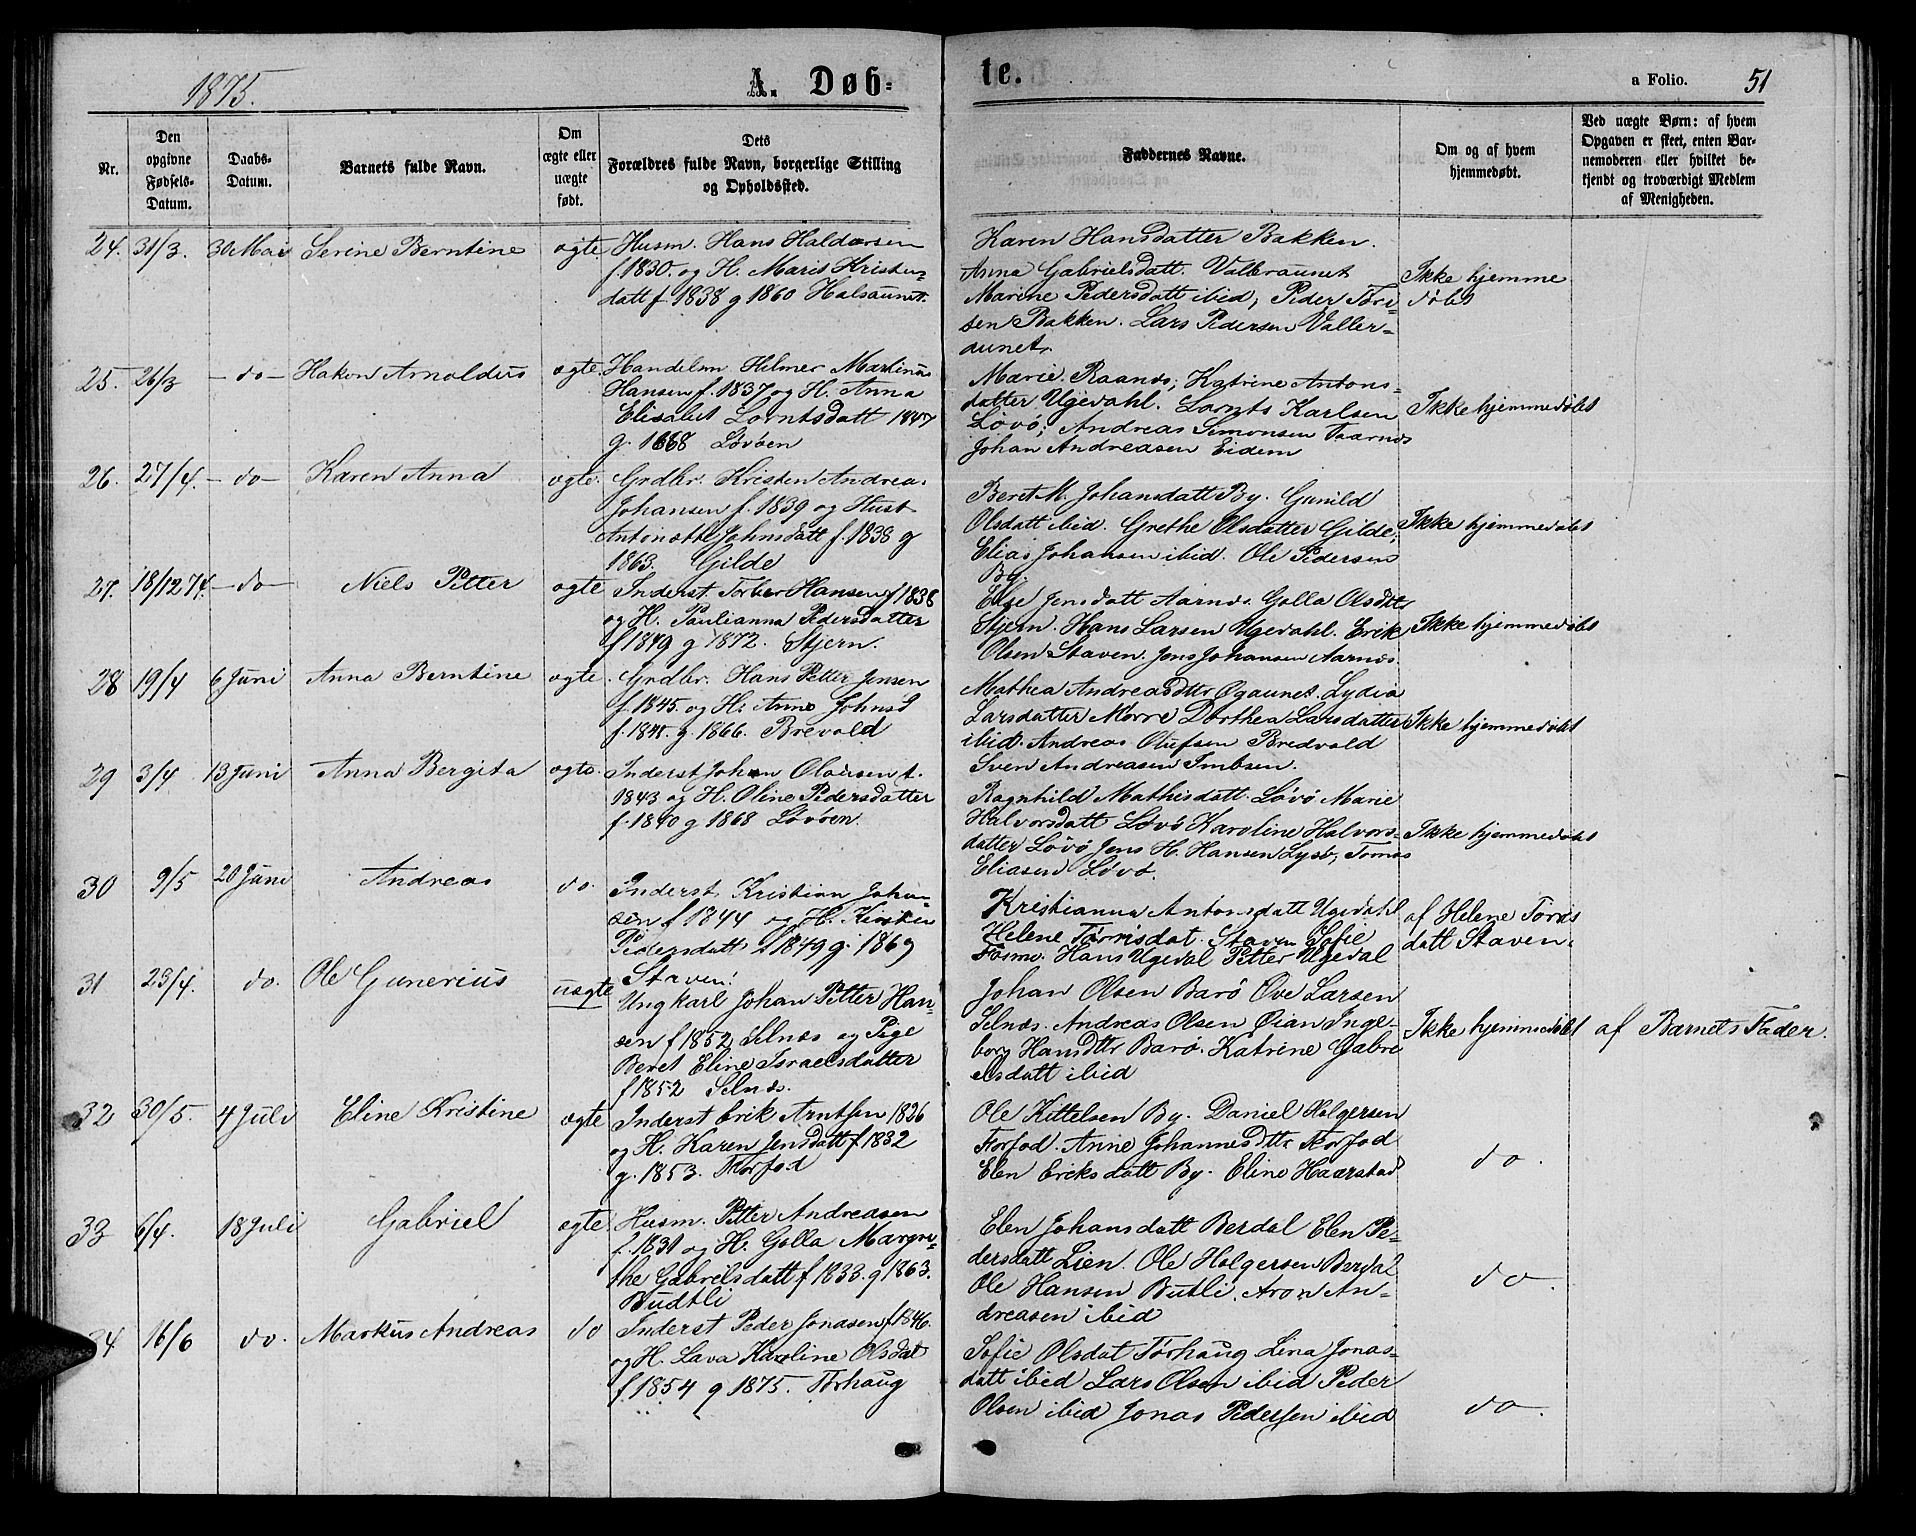 1875.
A. Døbte.
a Folio. 51
Nr.
Den opgivne Fødsels-Datum.
Daabs-Datum.
Barnets fulde Navn.
Om ægte eller uægte født.
Dets Forældres fulde Navn, borgerlige Stilling og Opholdssted.
Faddernes Navne.
Om og af hvem hjemmedøbt.
Ved uægte Børn: af hvem Opgaven er skeet, enten Barnemoderen eller hvilket bekjendt og troværdigt Medlem af Menigheden.
24. 31/3. 30 Mai Serine Berntine ægte Husm. Hans Haldorsen
f. 1830. og H. Maris Kristen-
datt f. 1838 g 1860 Halsaunet.
Karen Hansdatter Bakken.
Anna Gabrielsdatt. Valleraunet
Marine Pedersdatt ibid, Peder Tøri-
sen Bakken. Lars Pedersen Valler-
aunet.
Ikke hjemme
døbt
25. 26/3 - do - Hakon Arnoldus ægte. Handelsm. Hilmer Martinus
Hansen f. 1837 og H. Anna
Elisabet Lorntsdatt 1847
g. 1868 Løvøen
Marie Raanes; Katrine Antons-
datter Ugedahl. Lornts Karlsen
Løvø; Andreas Simonsen Taarnes
Johan Andreasen Eidem
Ikke hjemmedøbt
26. 27/4. - do - Karen Anna ægte. Grdbr. Kristen Andreas
Johansen f. 1839 og Hust
Antonette Johnsdatt f. 1838 g
1863. Gilde
Beret M. Johansdatt By. Gunild
Olsdatt ibid. Grethe Olsdatter Gilde,
Elias Johansen ibid. Ole Pedersen
By.
Ikke hjemmedøbt
27. 18/12 74. - do - Niels Petter ægte Inderst. Torber Hansen f 1838
og H. Paulianna Pedersdatter
f 1849 g 1872. Stjern.
Else Jensdatt Aarnes. Golla Olsdtr
Stjern. Hans Larsen Ugedahl. Erik
Olsen Staven. Jens Johansen Aarnes.
Ikke hjemmedøbt
28 19/4 6 Juni Anna Berntine ægte. Grdbr. Hans Petter Jensen
f. 1845. og H. Anne Johnsd
f. 1841. g. 1866. Brevold
Mathea Andreasdtr Øgaunet. Lydia
Larsdatter Morre Dorthea Larsdatter
ibid. Andreas Olufsen Bredvold
Sven Andreasen Imbsen.
Ikke hjemmedøbt
29 3/4 13 Juni Anna Bergita ægte. Inderst Johan Olausen f.
1843 og H. Oline Pedersdatter
f. 1840 g 1868 Løvøen.
Ragnhild Mathisdatt. Løvø Marie
Halvorsdatt Løvø Karoline Halvors-
datter Løvø Jens H. Hansen Lysø, Tomas
Eliasen Løvø.
Ikke hjemmedøbt
30 9/5 20 Juni Andreas do. Inderst Kristian Johan-
sen f 1844 og H. Kirsten
Pedersdatt f 1849 g. 1869
Staven.
Kristianna Antonsdatt Ugedahl
Helene Tørrisdat. Staven Sofie
Fosmo. Hans Ugedal Petter Ugedal
af Helene Tøris
datt Staven.
31 23/4. do. Ole Gunerius uægte Ungkarl Johan Petter Han-
sen f 1852, Selnes og Pige
Beret Eline Israelsdatter
f 1852 Selnes.
Johan Olsen Barø Ove Larsen
Selnes. Andreas Olsen Øian Inge-
borg Hansdtr Barø. Katrine Gabri
elsdatt ibid
Ikke hjemmedøbt
af Barnets Fader.
32 30/5. 4 Juli Eline Kristine ægte Inderst Erik Arntsen 1826
og H. Karen Jensdatt f 1832
g. 1853. Forfod
Ole Kittelsen By. Daniel Holgersen
Forfod. Anne Johannesdtr. Forfod
Elen Eriksdatt By. Eline Haarstad
do.
33 6/4. 18 Juli Gabriel ægte Husm. Petter Andreasen
f. 1831 og H. Golla Margre-
the Gabrielsdatt f 1833. g 1863.
Budtli
Elen Johansdatt Berdal Elen Pe-
dersdatt Lien. Ole Holgersen Berdal
Ole Hansen Butli. Aron An-
dreasen ibid
do.
34 16/6 do. Markus Andreas do Inderst Peder Jonasen f 1846.
og H. Lava Karoline Olsdat
f 1854 g 1875. Tørhaug
Sofie Olsdat Tørhaug Lina Jonas-
datt ibid Lars Olsen ibid Peder
Olsen ibid Jonas Pedersen ibid
do.